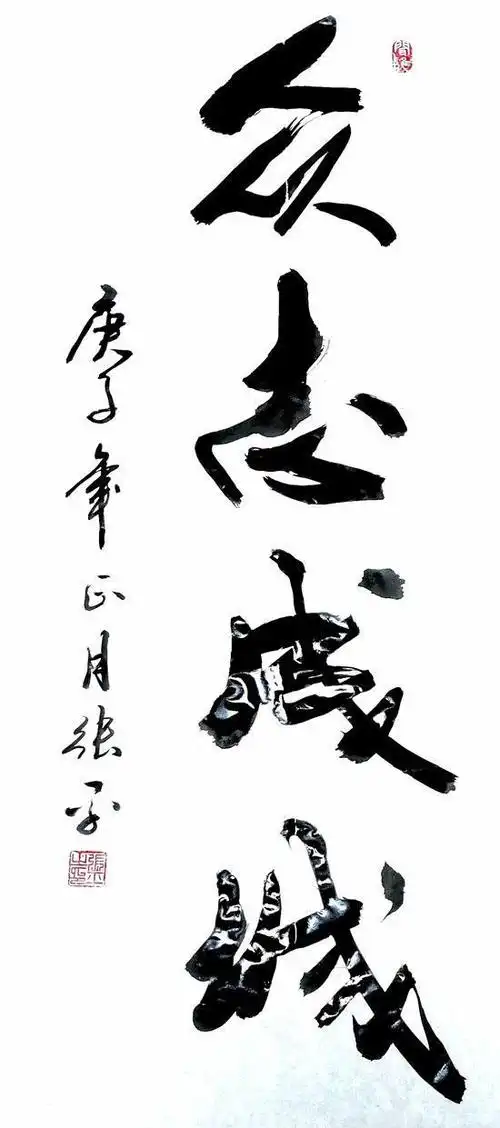 众志成城
庚子年正月张